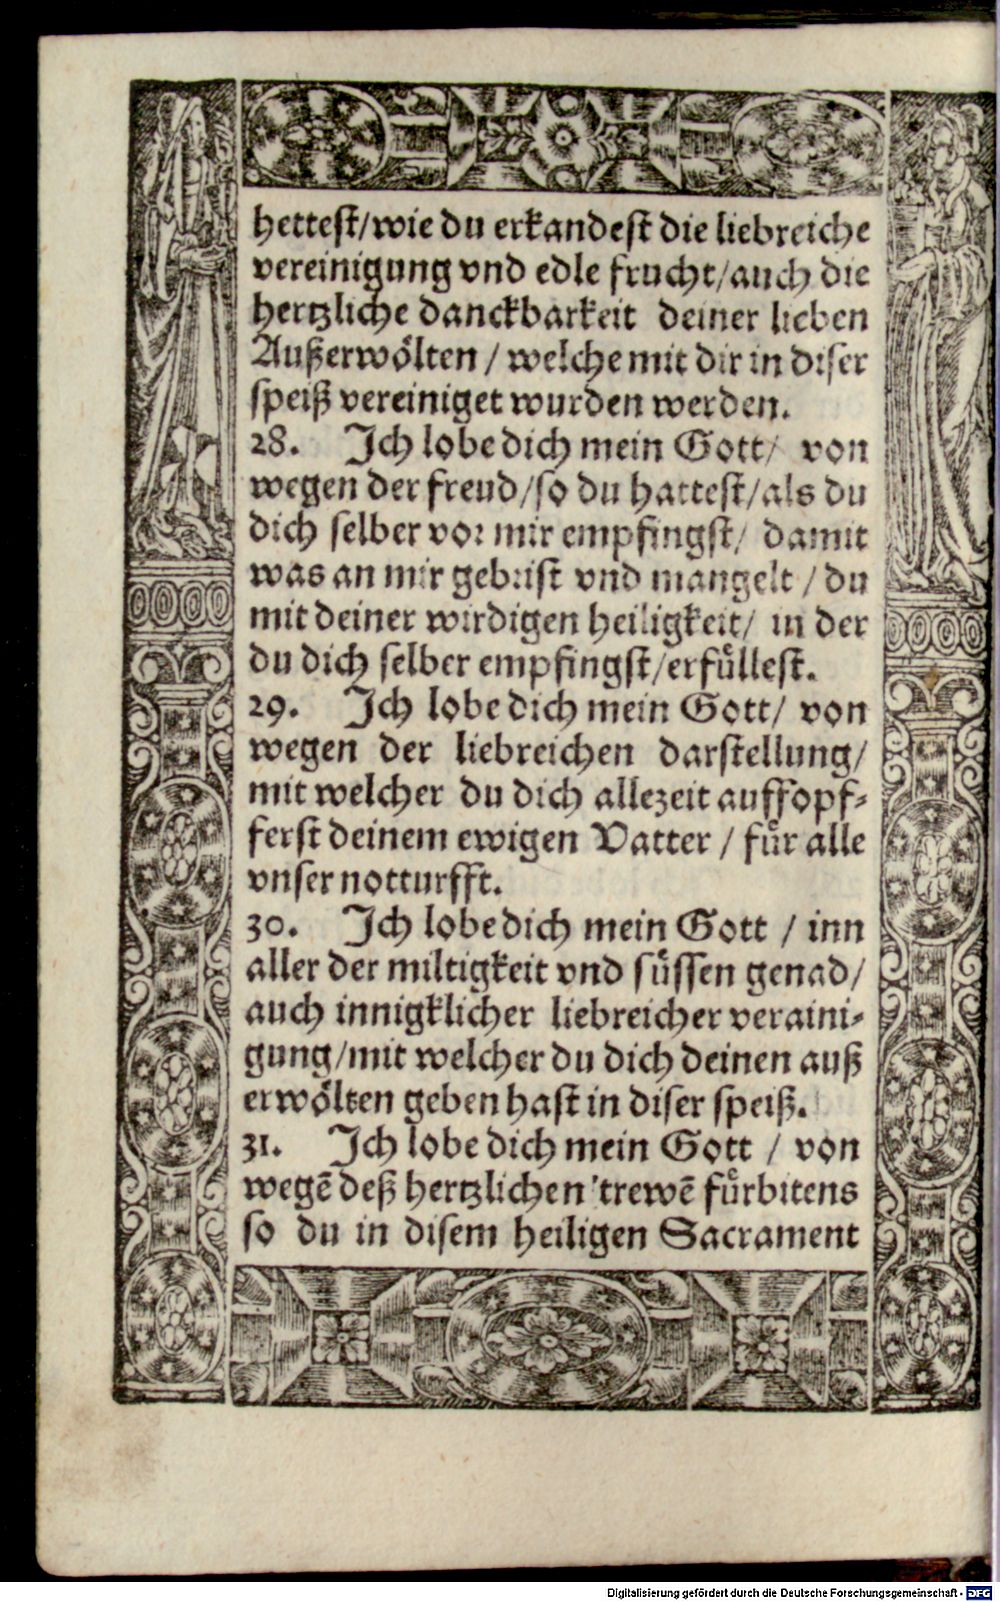 hettest/wie du erkandest die liebreiche
vereinigung vnd edle frucht/auch die
hertzliche danckbarkeit deiner lieben
Außerwölten / welche mit dir in diser
speiß vereiniget wurden werden.
28. Ich lobe dich mein Gott/ von
wegen der freud/so du hattest/als du
dich selber vor mir empfingst/ damit
was an mir gebrist vnd mangelt / du
mit deiner wirdigen heiligkeit/ in der
du dich selber empfingst/erfüllest.
29. Ich lobe dich mein Gott/ von
wegen der liebreichen darstellung/
mit welcher du dich allezeit auffopf-
ferst deinem ewigen Vatter / für alle
vnser notturfft.
30. Ich lobe dich mein Gott / inn
aller der miltigkeit vnd süssen genad/
auch innigklicher liebreicher veraini-
gung/mit welcher du dich deinen auß
erwölten geben hast in diser speiß.
31. Ich lobe dich mein Gott / von
wegẽ deß hertzlichen trewẽ fürbitens
so du in disem heiligen Sacrament
Digitalisierung gefördert durch die Deutsche Forschungsgemeinschaft - DFG